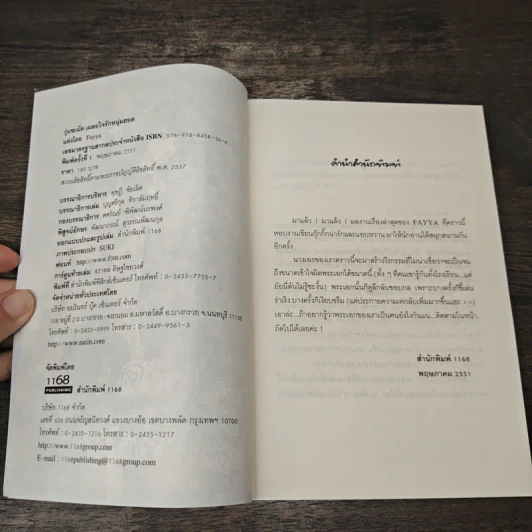 วุ่นชะมัด เผลอใจรักหนุ่มฮอต
แต่งโดย Fayya
เลขมาตรฐานสากลประจำหนังสือ ISBN 978-974-8458-36-6
พิมพ์ครั้งที่ 1 พฤษภาคม 2551
ราคา 189 บาท
สงวนลิขสิทธิ์ตามพระราชบัญญัติลิขสิทธิ์ พ.ศ. 2537
บรรณาธิการบริหาร
บรรณาธิการเล่ม
กองบรรณาธิการ
พิสูจน์อักษร
ออกแบบปกและรูปเล่ม สำนักพิมพ์ 1168
ภาพประกอบปก SUKI
ฟอนท์ http://www.f0nt.com
การ์ตูนท้ายเล่ม
พิมพ์ที่ โทรศัพท์ : 0-2433-7755-7
จัดจำหน่ายทั่วประเทศโดย
บริษัท อมรินทร์ บุ๊ค เซ็นเตอร์ จำกัด
108 หมู่ที่ 2 ถ.บางกรวย-จงถนอม ต.มหาสวัสดิ์ อ.บางกรวย จ.นนทบุรี
โทรศัพท์ : 0-2423-9999 โทรสาร : 0-2449-9561-3
http://www.naiin.com
จัดพิมพ์โดย
1168 สำนักพิมพ์ 1168
PUBLISHING
บริษัท 1168 จำกัด
เลขที่ ถนนจรัญสนิทวงศ์ แขวงบางอ้อ เขตบางพลัด กรุงเทพฯ 10700
โทรศัพท์ : 0-2435-1216 โทรสาร : 0-2435-1217
http://www.1168group.com
E-mail : 1168publishing@1168group.com
คำนำสำนักพิมพ์
มาแล้ว ! มาแล้ว ! ผลงานเรื่องล่าสุดของ FAYYA ที่คราวนี้
หอบงานเขียนกุ๊กกิ๊กน่ารักและแอบหวาน มาให้นักอ่านได้สนุกสนานกัน
อีกครั้ง
นางเอกของเราคราวนี้จะมาสร้างวีรกรรมที่ไม่น่าเชื่อว่าจะเป็นคน
ถึงขนาดเข้าใจผิดพระเอกได้ขนาดนี้ (ทั้ง ๆ ที่คนเขารู้กันทั้งโรงเรียน...แต่
ยัยนี่ดันไม่รู้ซะงั้น) พระเอกนั้นก็ดูลึกลับชอบกล เพราะบางครั้งก็ขี้เล่น
ร่าเริง บางครั้งก็เงียบขรึม (แต่ประกายความเท่กลับเพิ่มมากขึ้นแฮะ >.<)
เอาล่ะ...ถ้าอยากรู้ว่าพระเอกของเราเป็นคนยังไงกันแน่...ติดตามในหน้า
ถัดไปได้เลยค่ะ !
สำนักพิมพ์ 1168
พฤษภาคม 2551